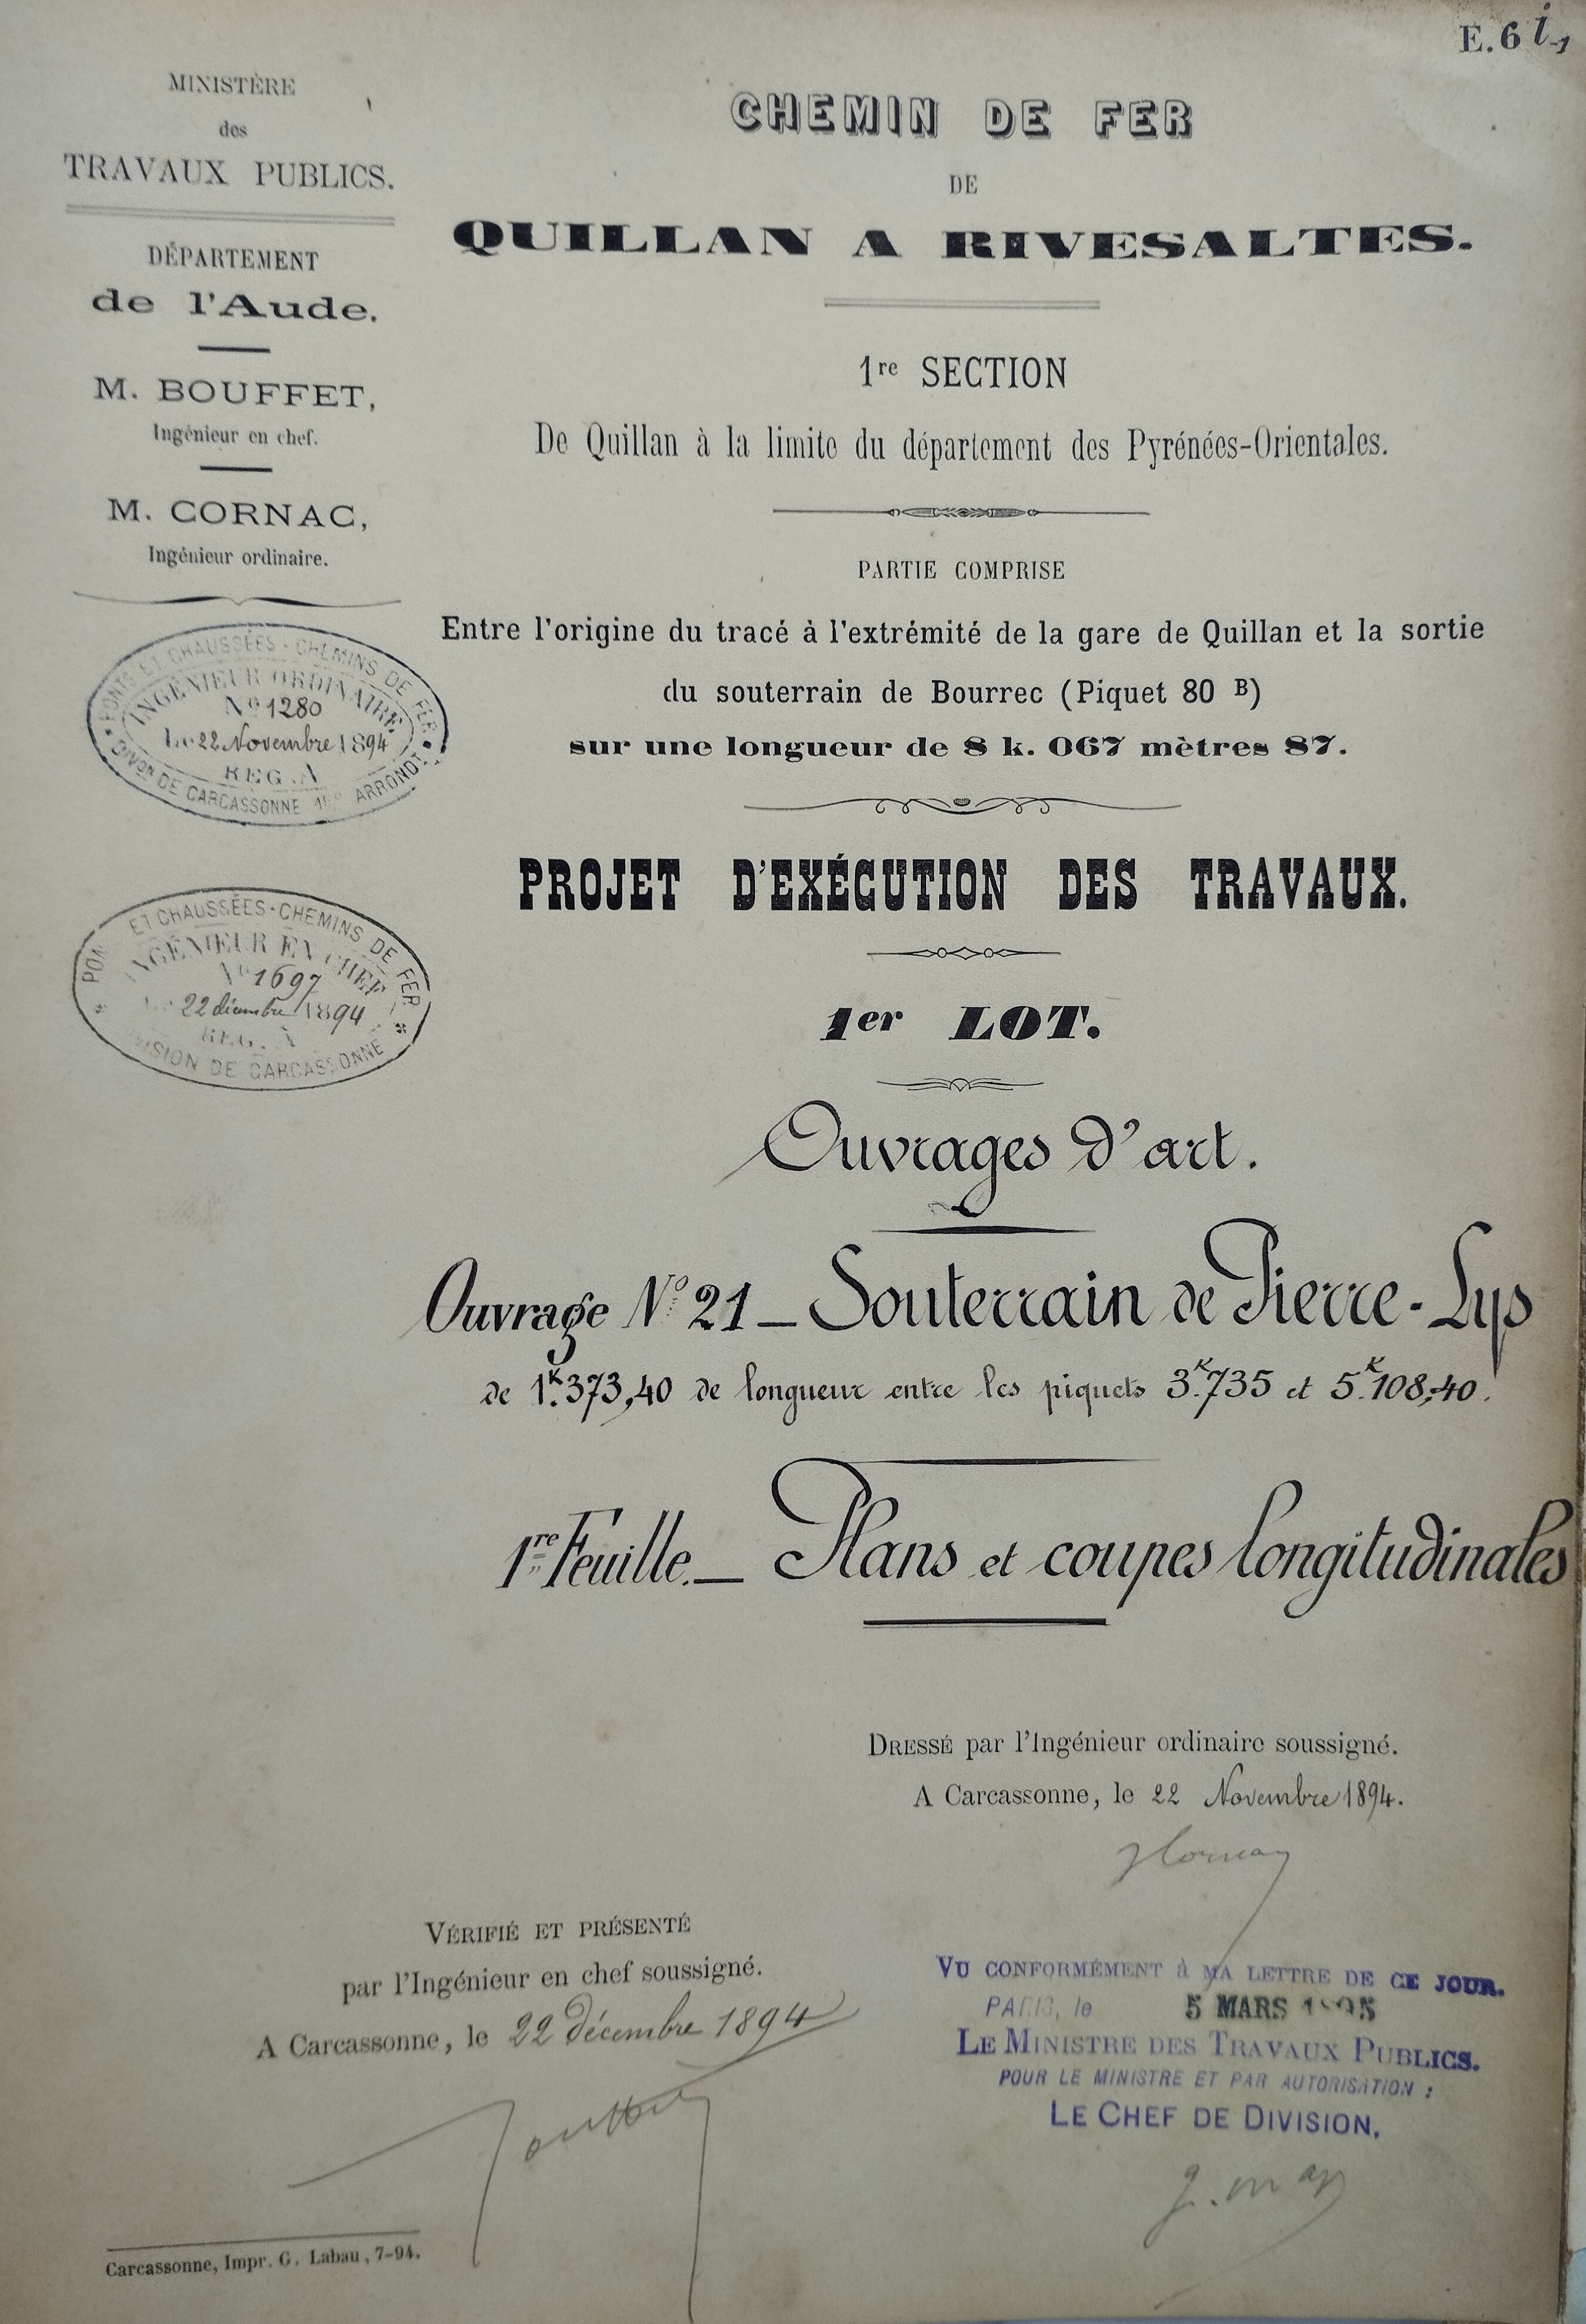 E.6 i-1
MINISTÈRE
des
TRAVAUX PUBLICS.
DÉPARTEMENT
de l'Aude.
M. BOUFFET,
Ingénieur en chef.
M. CORNAC,
Ingénieur ordinaire.
PONTS ET CHAUSSÉES - CHEMINS DE FER
INGÉNIEUR ORDINAIRE
No 1280
Le 22 Novembre 1894
REG. A
DIVon DE CARCASSONNE 1er ARRONDT
PON ET CHAUSSÉES - CHEMINS DE FER
INGÉNIEUR EN CHEF
No 1697
22 décembre 1894
REG. A
VISION DE CARCASSONNE
CHEMIN DE FER
DE
QUILLAN A RIVESALTES.
1re SECTION
De Quillan à la limite du département des Pyrénées-Orientales.
PARTIE COMPRISE
Entre l'origine du tracé à l'extrémité de la gare de Quillan et la sortie
du souterrain de Bourrec (Piquet 80 B)
sur une longueur de 8 k. 067 mètres 87.
PROJET D'EXÉCUTION DES TRAVAUX.
1er LOT.
Ouvrages d'art.
Ouvrage No 21 _ Souterrain de Pierre-Lys
de 1K.373,40 de longueur entre les piquets 3K.735 et 5K.108,40.
1re Feuille. _ Plans et coupes longitudinales
DRESSÉ par l'Ingénieur ordinaire soussigné.
A Carcassonne, le 22 Novembre 1894.
VÉRIFIÉ ET PRÉSENTÉ
par l'Ingénieur en chef soussigné.
A Carcassonne, le 22 décembre 1894
Bouffet
VU CONFORMÉMENT à MA LETTRE DE CE JOUR.
PARIS, le 5 MARS 1895
LE MINISTRE DES TRAVAUX PUBLICS.
POUR LE MINISTRE ET PAR AUTORISATION :
LE CHEF DE DIVISION.
Carcassonne, Impr. G. Labau, 7-94.